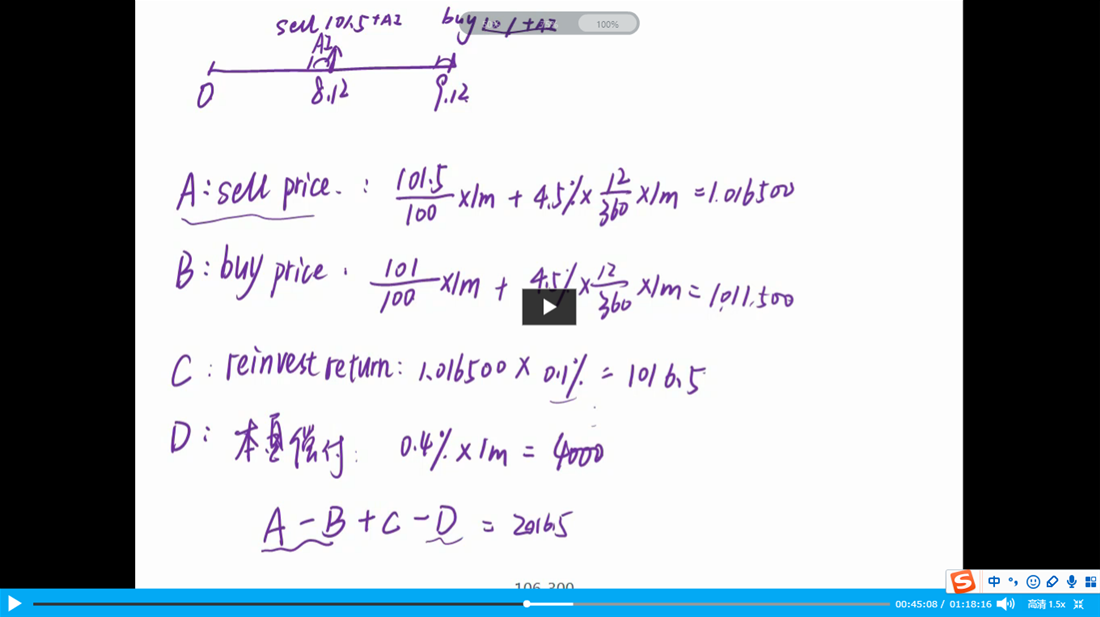 sell 101.5 + AI buy 101 + AI
100%
AI
0 8.12 9.12
A: sell price. : 101.5/100 × 1m + 4.5% × 12/360 × 1m = 1.016500
B: buy price . 101/100 × 1m + 4.5% × 12/360 × 1m = 1,011.500
C: reinvest return: 1.016500 × 0.1% = 1016.5
D: 本息偿付: 0.4% × 1m = 4000
A - B + C - D = 2016.5
106-300
中
00:45:08 / 01:18:16 高清 1.5x